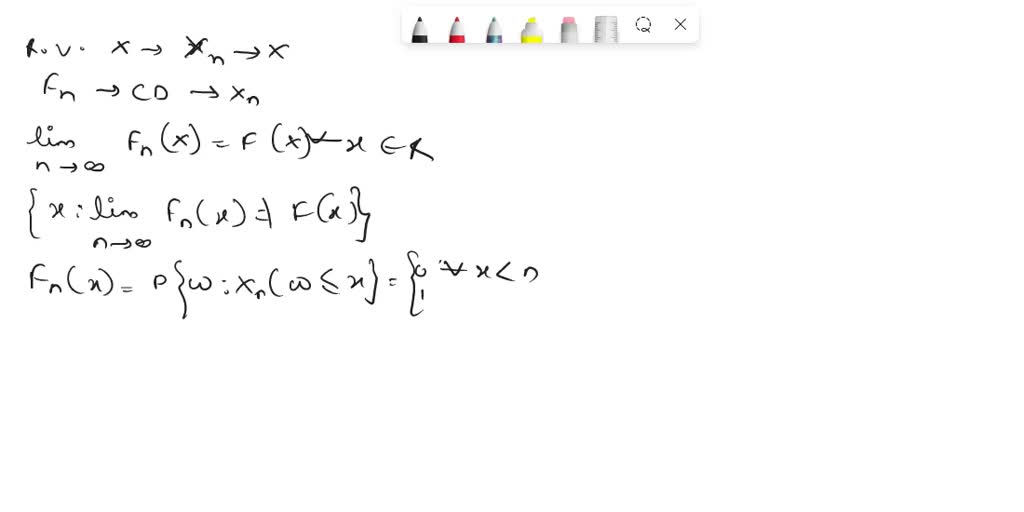 R.V. X → Xn → X
Fn → CD → Xn
lim n→∞ Fn(x) = F(x) ∀ x ∈ R
{x : lim n→∞ Fn(x) ≠ F(x)}
Fn(x) = P{ω : Xn(ω ≤ x} = {0 ∀ x < n
1